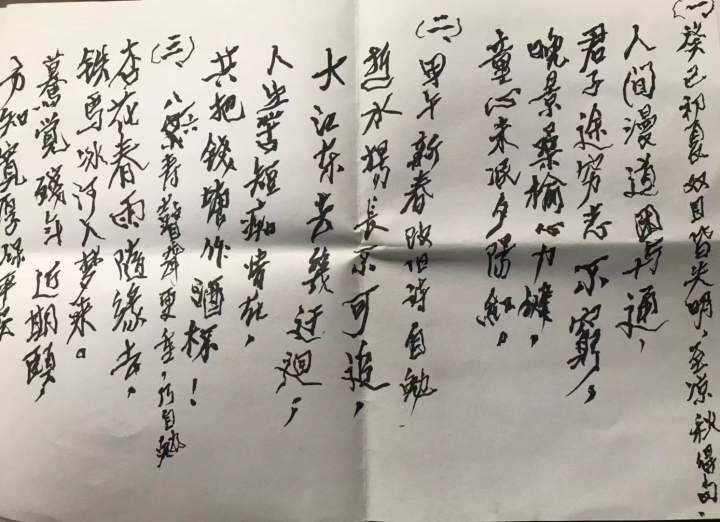 (一) 癸巳初夏双目皆失明，至凉秋得句，
人间漫道困与通，
君子途穷志不穷，
晚景桑榆心力健，
童心未泯夕阳红。
(二) 甲午新春 自勉
逝水 长亦可追，
大江东去几迂迴，
人生苦短痴情在，
共把钱塘作酒杯！
(三) 八 寿 ，以自勉
杏花春雨随缘去，
铁马冰河入梦来。
蓦觉残年近期颐，
方知宽厚